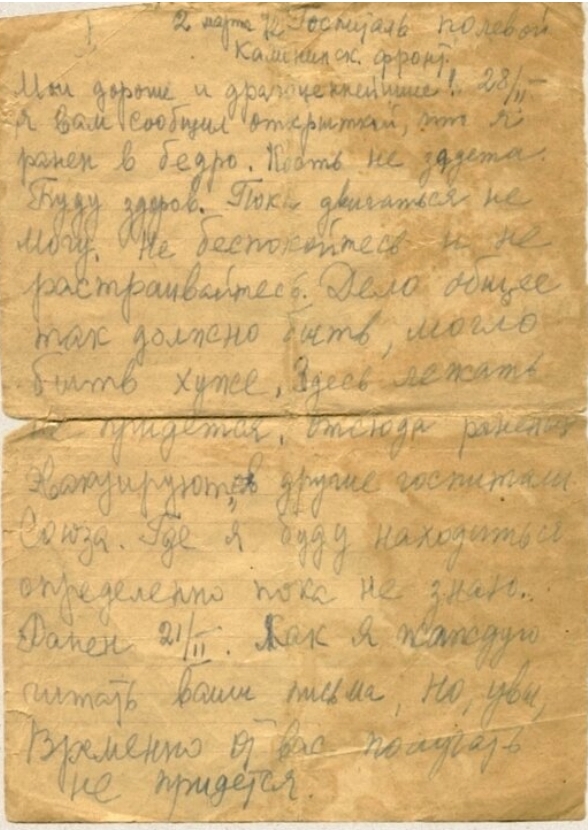 2 марта 42 Госпиталь полевой
Калининск. фронт.
Мои дорогие и драгоценнейшие! 28/II
я вам сообщил открыткой, что я
ранен в бедро. Кость не задета.
Буду здоров. Пока двигаться не
могу. Не беспокойтесь и не
растраивайтесь. Дело общее
так должно быть, могло
быть хуже. Здесь лежать
не придется, отсюда раненых
эвакуируют в другие госпитали
Союза. Где я буду находиться
определенно пока не знаю.
Ранен 21/II. Как я жажду
читать ваши письма, но, увы,
Временно от вас получать
не придется.